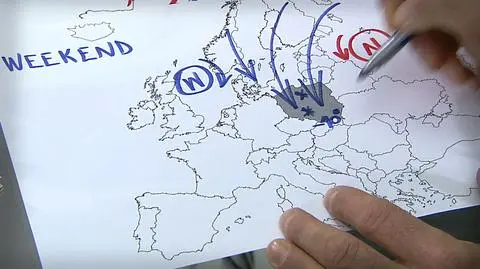 WEEKEND
W
N
-10°